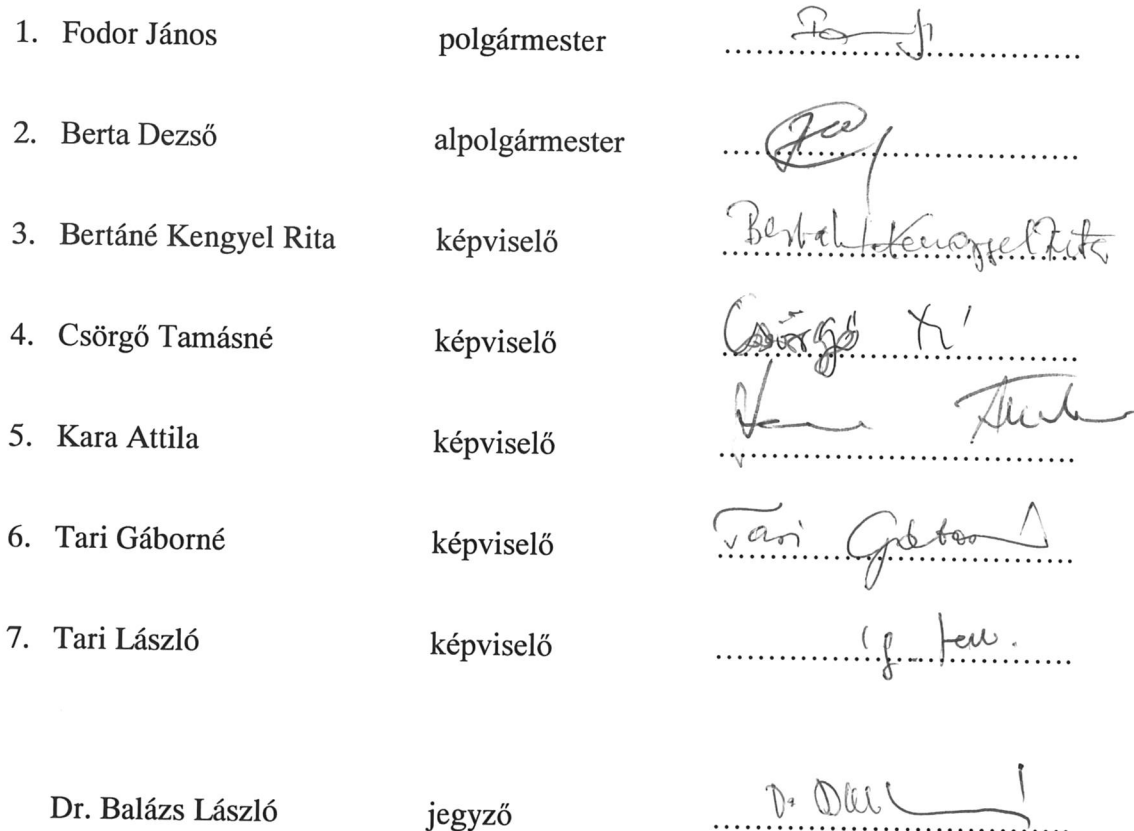 1. Fodor János polgármester
2. Berta Dezső alpolgármester
3. Bertáné Kengyel Rita képviselő Bertáné Kengyel Rita
4. Csörgő Tamásné képviselő Csörgő
5. Kara Attila képviselő
6. Tari Gáborné képviselő Tari Gáborné
7. Tari László képviselő
Dr. Balázs László jegyző Dr.